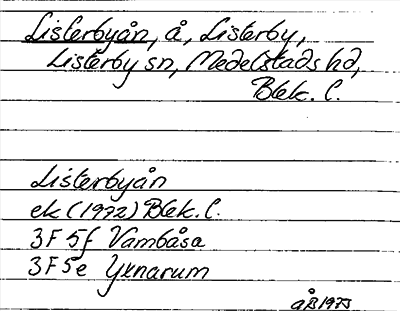 Listerbyån, å, Listerby,
Listerby sn, Medelstads hd,
Blek. l.
Listerbyån
ek (1972) Blek. l.
3F 5f Vambåsa
3F 5e Yxnarum
åB 1973